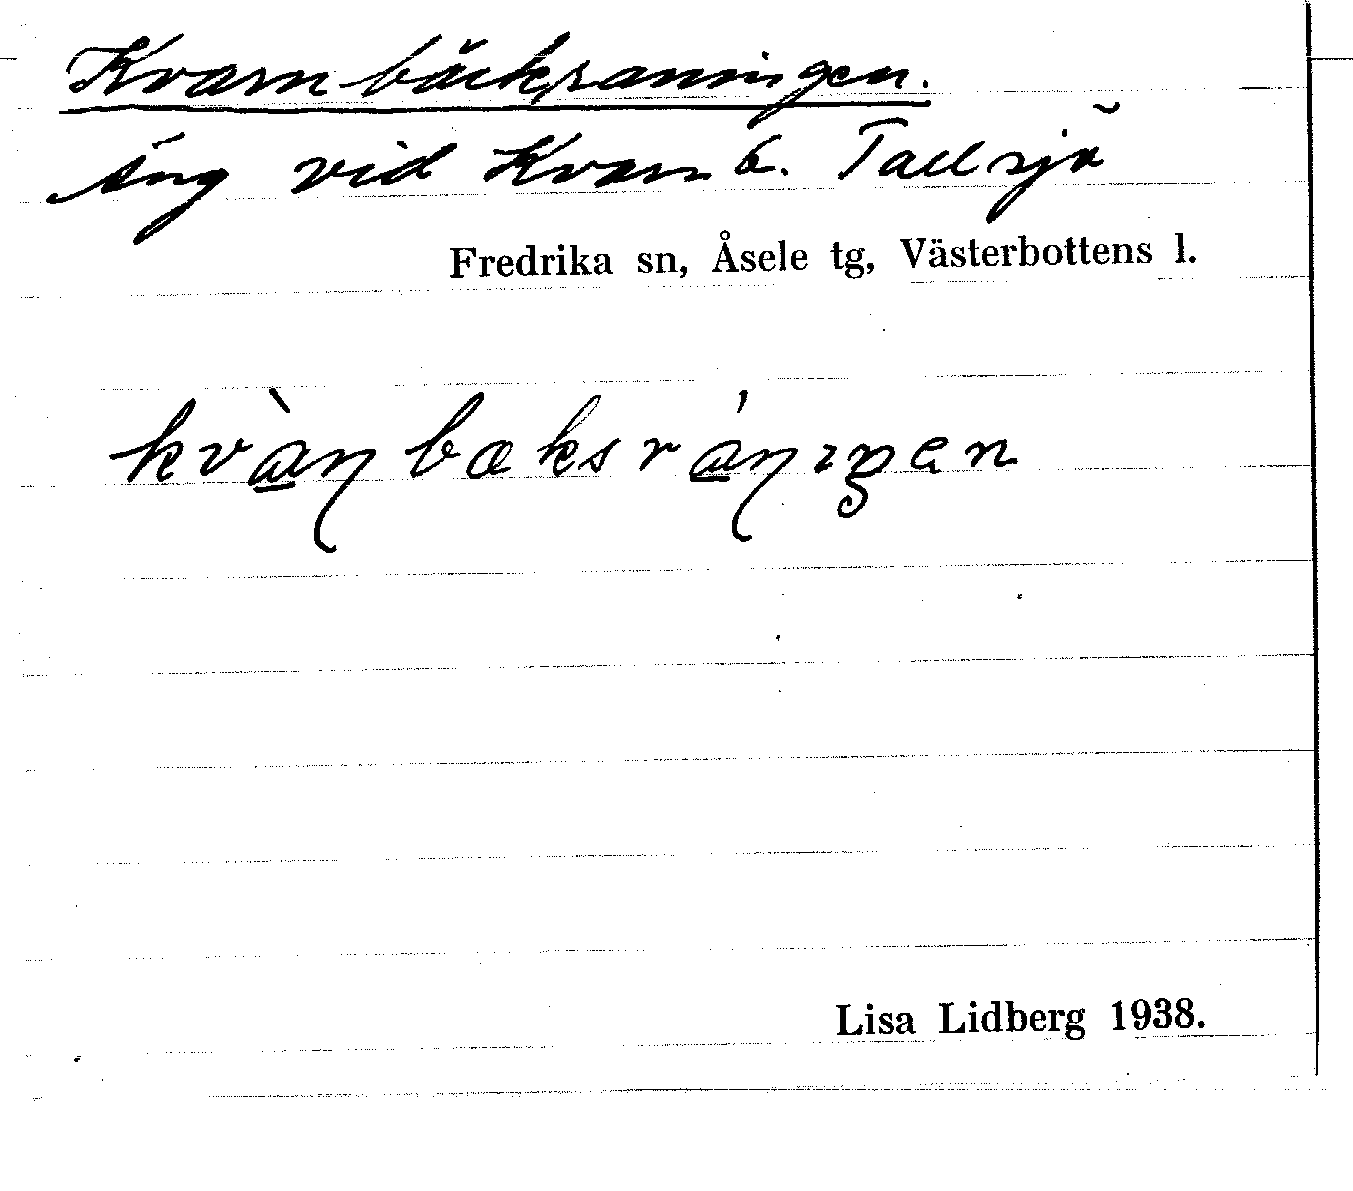 Kvarnbäcksraningen.
Äng vid Kvarnb. Tallsjö
Fredrika sn, Åsele tg, Västerbottens l.
kvàɳbæksráɳıŋen
Lisa Lidberg 1938.